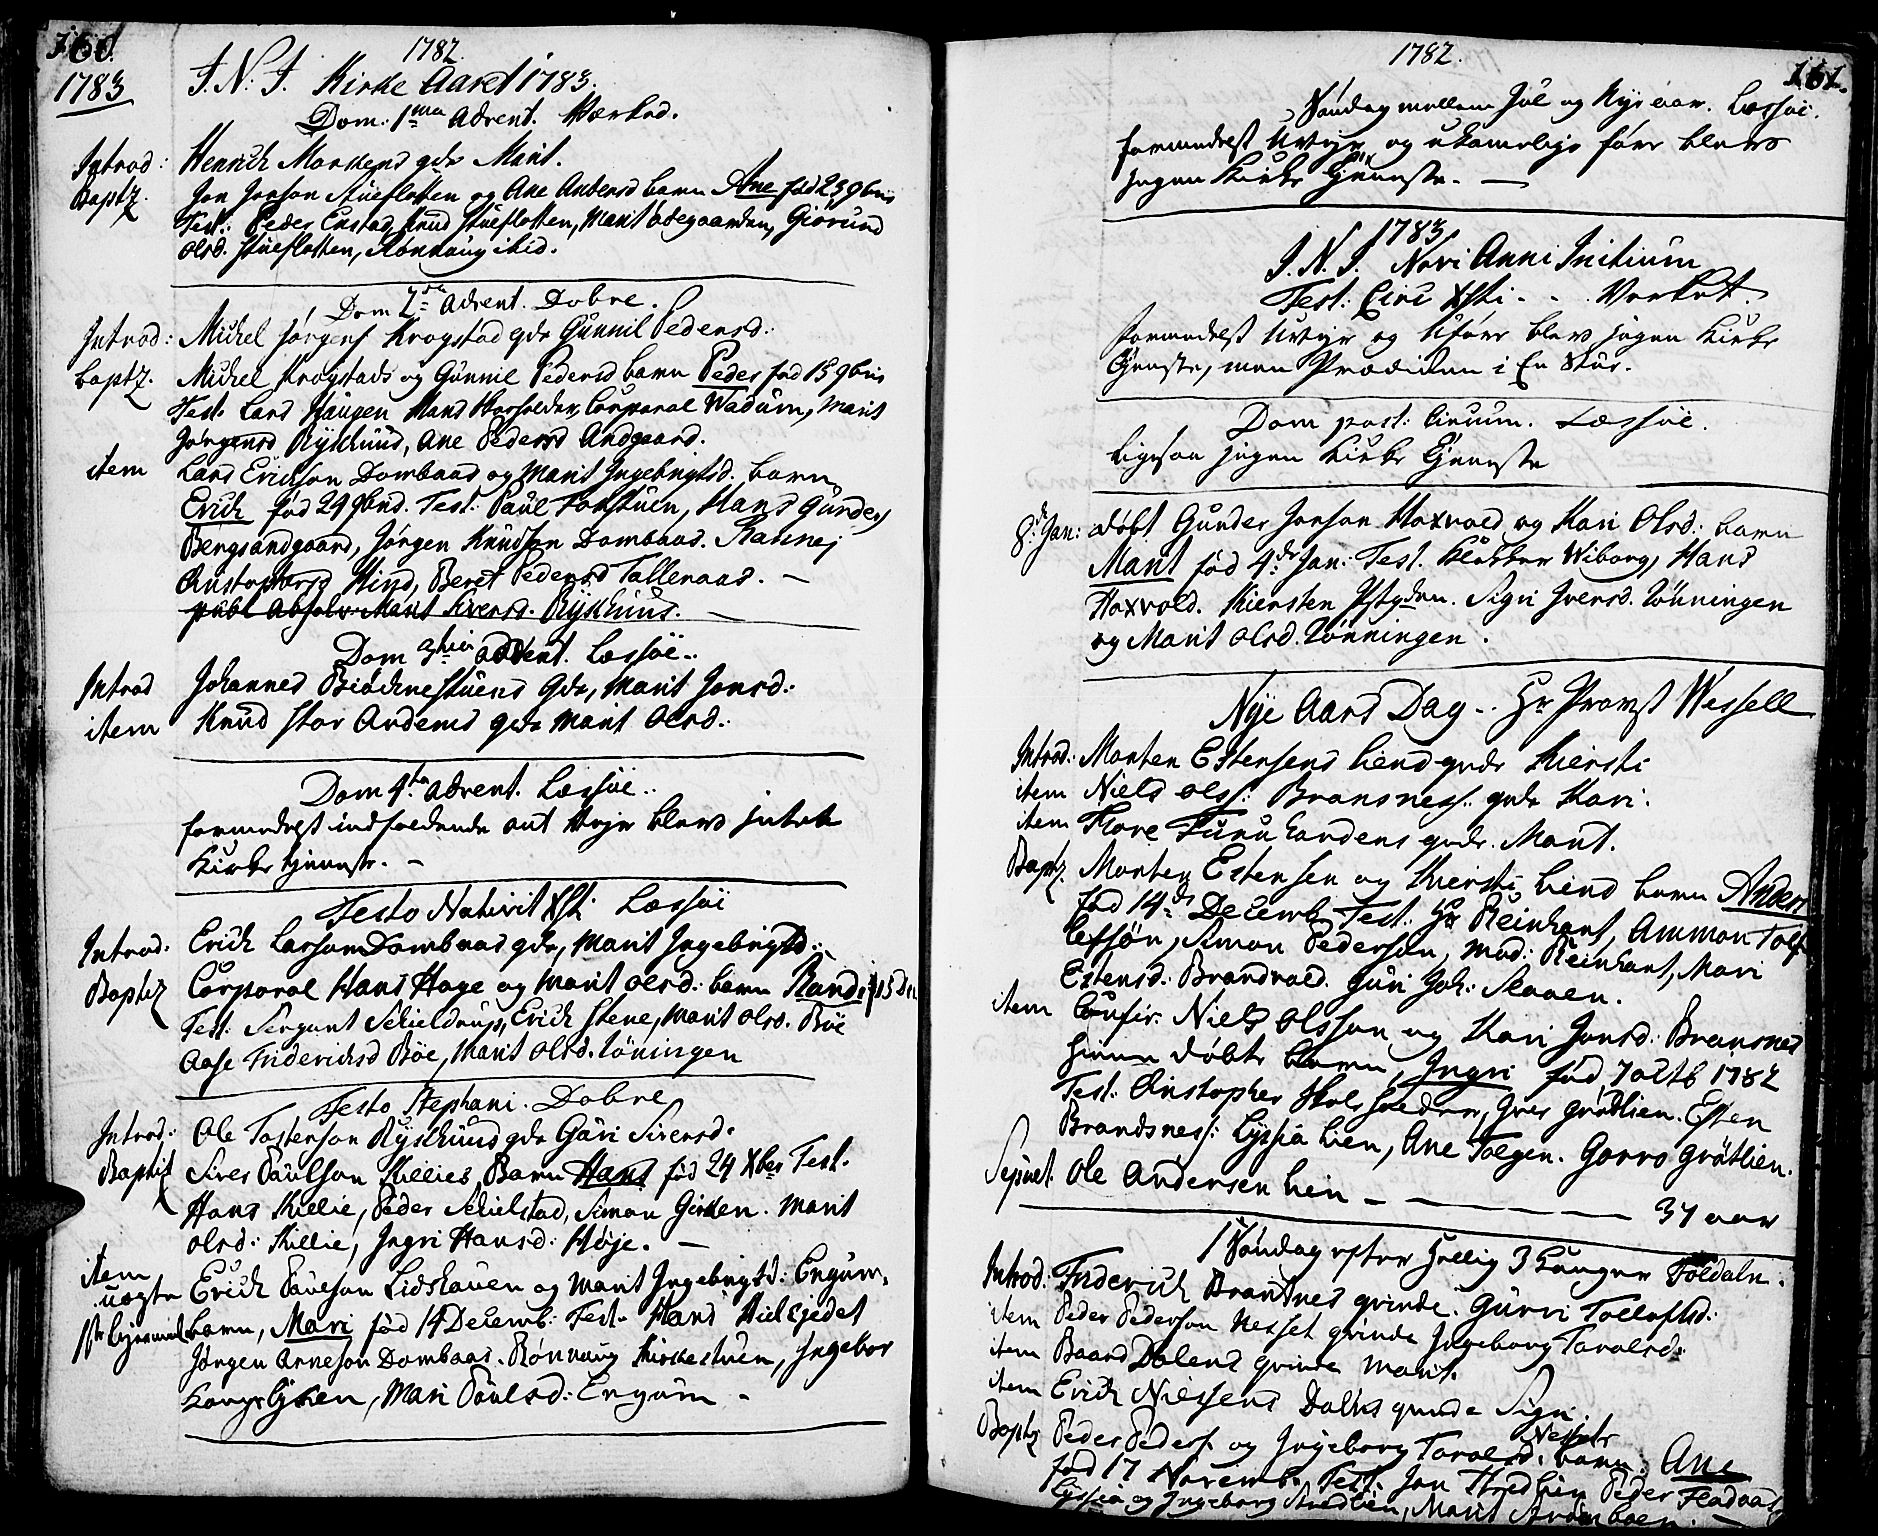 160.
1782.
1783
J. N. J. Kirke Aaret 1783.
Dom: 1ma Advent.
Introd: Henrich gde Marit.
Baptz. Jon Jonson Stueflotten og Ane Andersd barn Ane fød 23 9bris
Test: Peder Enstad, Knud Stueflotten, Marit Ødegaarden, Giørund
Olsd. Stueflotten, Rønnaug ibid.
Dom 2da Advent. Dobre.
Introd: Michel Jørgens Krogstad gde Gunnil Pedersd:
baptz. Michel Krogstads og Gunnil Pedersd barn Peder fød 15 9bris
Test. Lars Haugen Hans Corporal Wadum, Marit
Jørgensd Rykhuus, Ane Pedersd Andgaard.
item Lars Erichson Dombaas og Marit Ingebrigtsd. barn
Erich fød 29 9bris. Test: Paul Fokstuen, Hans Gunders
Bergsandgaard, Jørgen Knudson Dombaas.
Christophersd Hind, Beret Pedersd Talleraas. —
publ. Absolv. Marit Siversd. Rykhuus. —
Dom 3tia Advent. Læssøe.
Introd Johannes gde, Marit Jonsd:
item Knud Stor gde Marit Olsd:
Dom 4ta Advent. Læssøe.
formedelst indfaldende ont blev intet
Kirke tienneste. —
Festo Nativit Xsti Læssøe
Introd. Erich Larson Dombaas gde, Marit Ingebrigtsd:
Baptiz Corporal Hans Hage og Marit Olsd: barn Randi
Test: Sergant Schieldrup, Erich Stene, Marit Olsd. Bøe
Aase Friderichsd Bøe, Marit Olsd. Løningen
Festo Stephani. Dobre
Introd: Ole Tostenson Rykhuus gde Guri Siversd.
Baptiz Siver Paulson Killies Barn Hans fød 24 Xber Test.
Hans Killie, Peder Schielstad, Simon Girken. Marit
Olsd: Killie, Ingri Hansd: Høje. —
item
uægte Erich Paulson Lidshauen og Marit Ingebrigtsd: Engum,
barn, Mari fød 14 Decemb: Test. Hans
Jørgen Arneson Dombaas. Rønnaug Kirkestuen, Ingebor
Mari Paulsd: Engum —
1782.
161.
Søndag mellem Jul og Nyt aar. Læssøe.
formedelst Uveyr og ukommelige føre blev
ingen Kirke Tienneste. —
1783
J. N. J. Novi Anni Initium
Fest: Circ Xsti - -
formedelst Uveyr og Uføre blev ingen Kirke
Tieneste, men Prædiken i En Stue.
Dom post: Circum. Læssøe.
ligesaa ingen Kirke Tieneste
8de Jan: døbt Gunder Jonson Hoxvold og Kari Olsd: barn
Marit fød 4de Jan: Test. Klokker Wiborg, Hans
Hoxvold. Kiersten Sigri Iversd. Lønningen
og Marit Olsd. Lønningen.
Nye Aars Dag -. Hr Provst Wessell
Introd: Morten Estensens Liens qvde Kiersti
item Niels Olss: Bransness: qvde Kari.
item Thore Furuhaudens qvde. Marit.
Baptz. Morten Estensen og Kiersti Liens barn Anders
fød 14de Decemb Test: Hr Reinhart, Ammon Tol-
lefsøn, Simon Pederson, Mad: Reinhart, Mari
Estensd: Brandvold. Guri Joh:
item Confir. Niels Olsson og Kari Jonsd: Bransnes
hiemme døbte barn, Ingri fød, 7 octb 1782
Test: Christopher Skoleholder, Iver Grøtlien. Esten
Brandsness: Lyssia Lien, Ane Folgen. Gorro Grøtlien.
Sepult. Ole Andersen Lien — — — 37 aar
1 Søndag efter Hellig 3 Konger Foldaln.
Introd: Friderich Brantnes qvinde. Gurri Tollofsd:
item Peder Pederson Nesset qvinde Ingeborg Tarolsd:
item Baard Dalens qvinde Marit.
item Erich Nielsens qvinde Sigri.
Baptz Peder Peders. og Ingeborg Tarolsd. barn: Ane
fød 17 Novemb. Test. Jon Peder
Lyssia og Ingeborg Marit